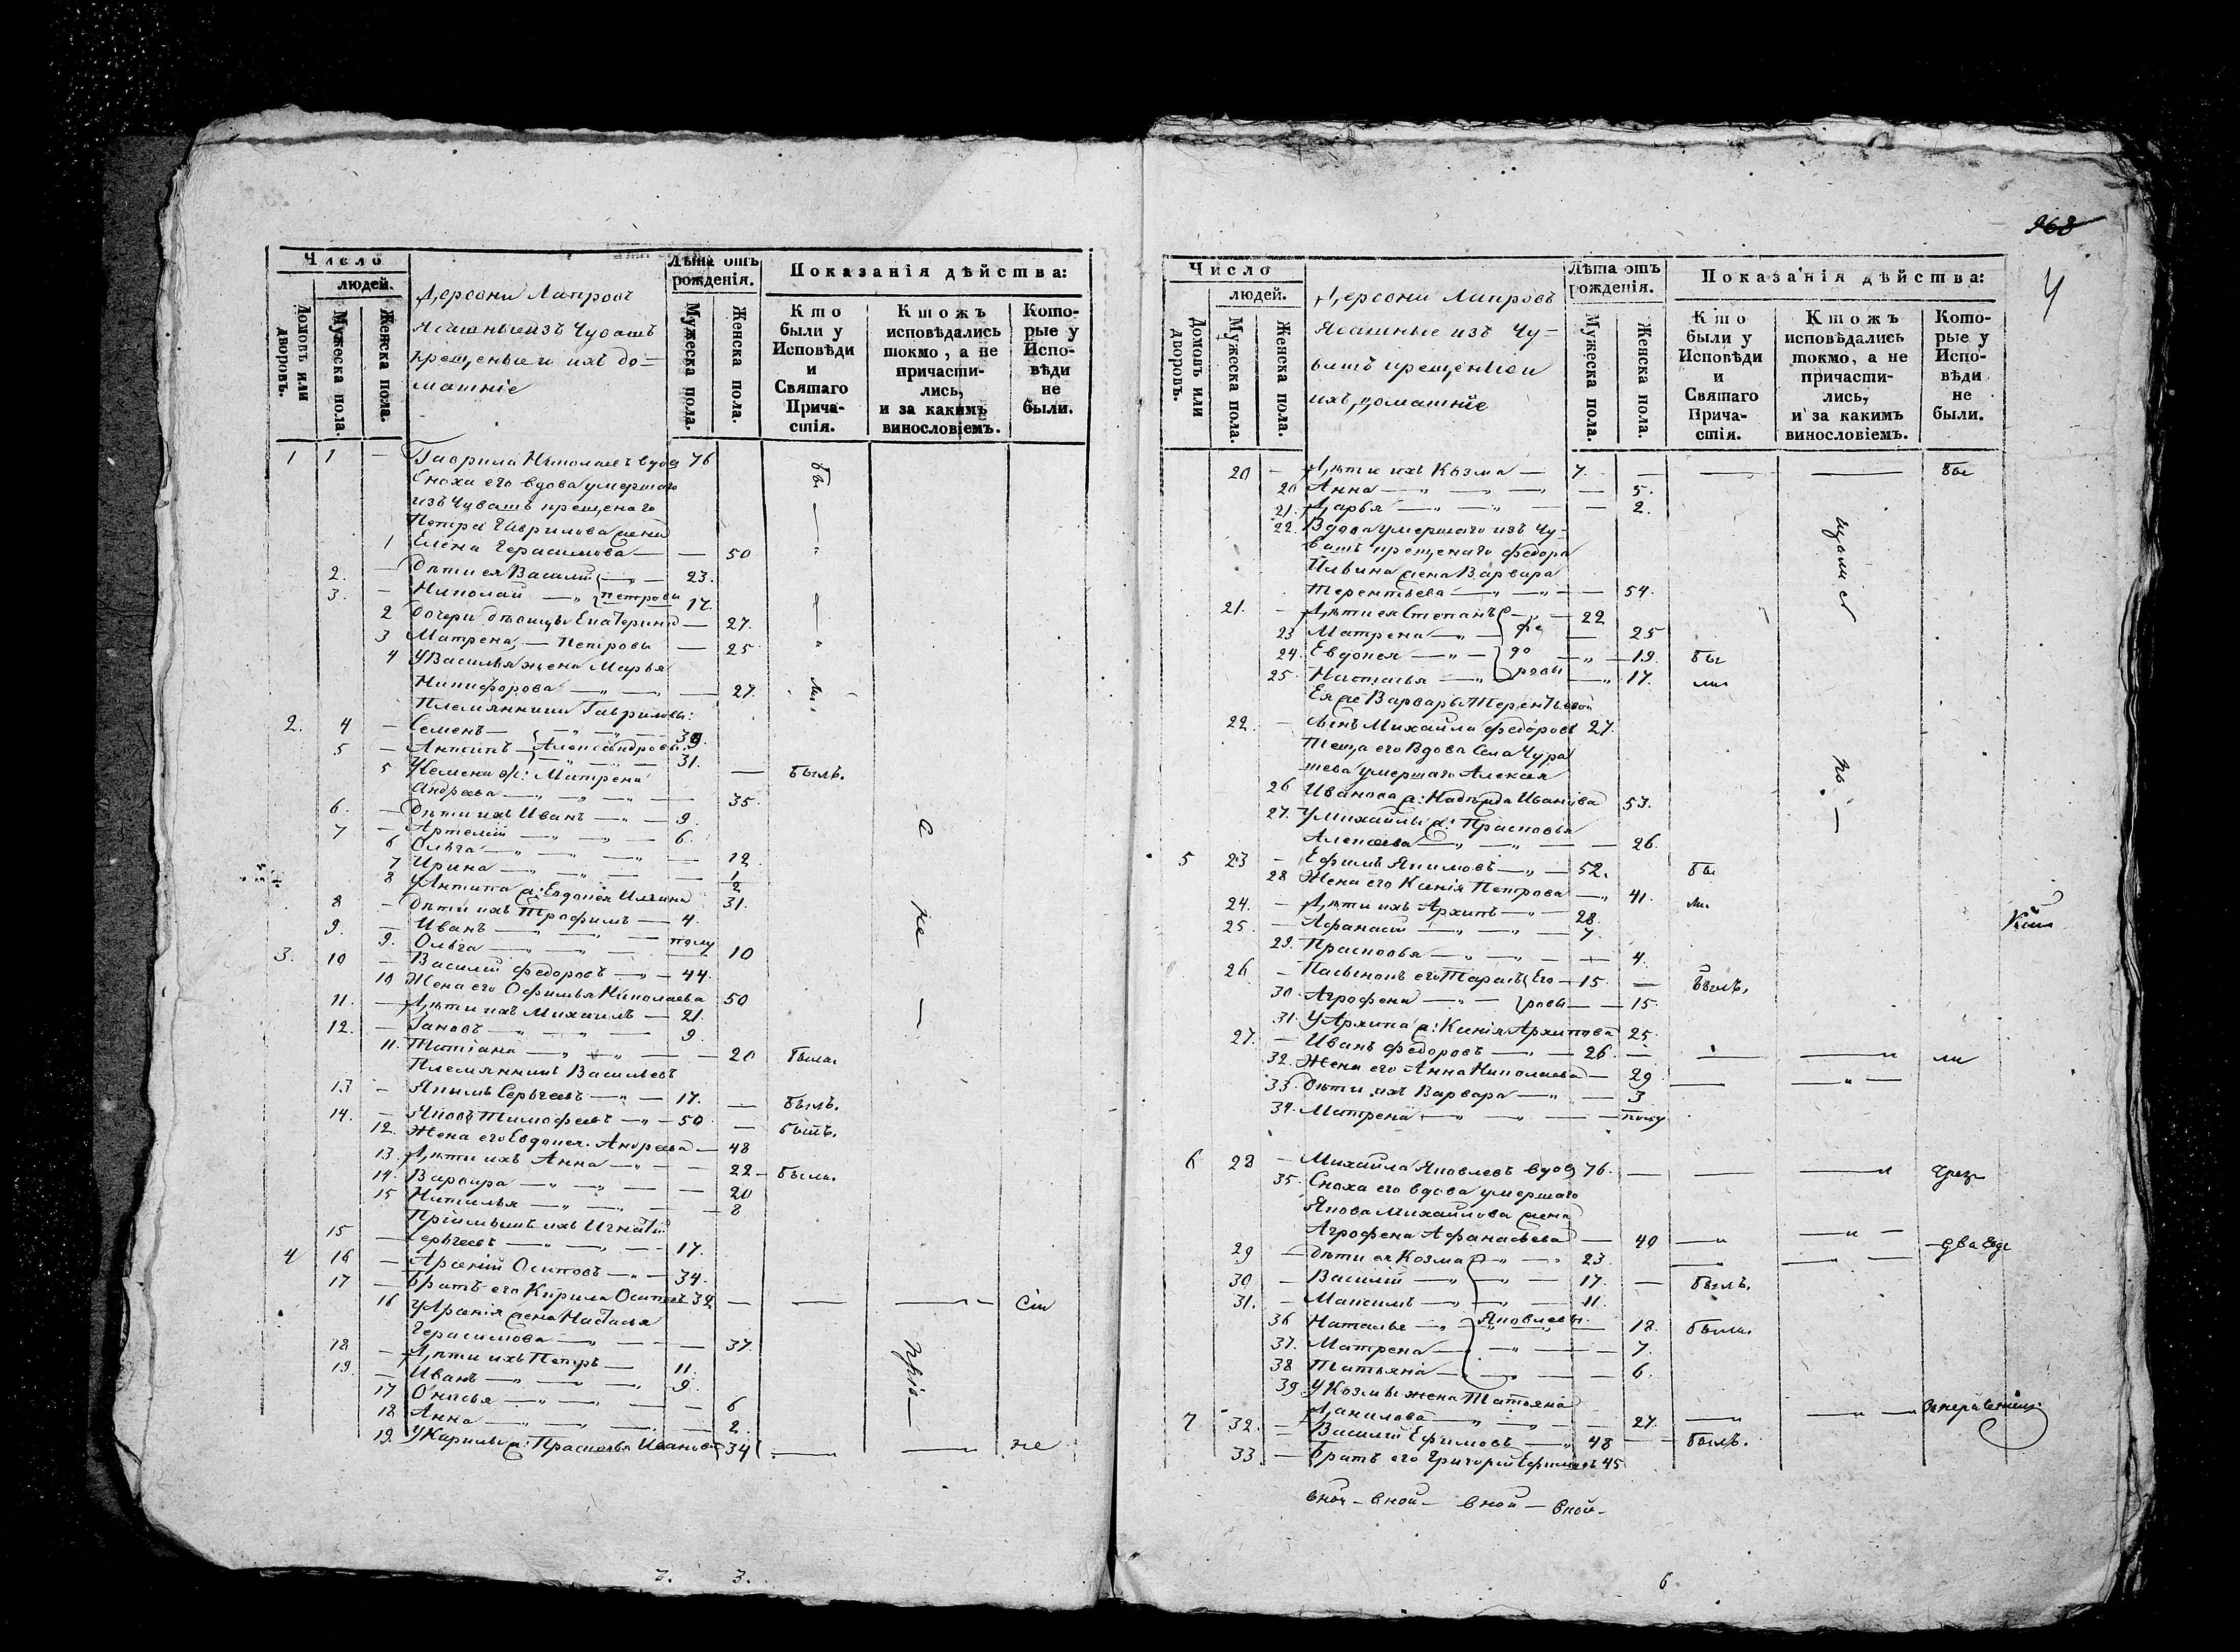 Число
людей.
Домовъ или дворовъ.
Мужеска пола.
Женска пола.
Деревни Лапровъ
Ясашные изъ Чувашъ
крещеные и ихъ до=
машніе
Лѣта отъ рожденія.
Мужеска пола.
Женска пола.
Показанія дѣйства:
Кто были у Исповѣди и Святаго Причастія.
Ктожъ исповѣдались токмо, а не причастились, и за какимъ винословіемъ.
Которые у Исповѣди не были.
1 1 — Гаврила Николаевъ вдов 76
Сноха его вдова умершаго
изъ Чувашъ крещенаго
Петра Гаврилова жена
1 Елена Герасимова — 50
2. — Дѣти ея Василій — 23.
3. — Николай — Петровы 17.
2 Дочери дѣвицы Екатерина — 27.
3 Матрена, — Петровы — 25
4 У Василья жена Марья
Никифорова — 27.
Племянники Гавриловы:
2. 4 — Семенъ —
5 — Антипъ — Александровы 31.
5 У Семена ж: Матрена — былъ.
Андреева — 35.
6. — Дѣти ихъ Иванъ — 9.
7 — Артемій — 6.
6 Ольга — 12
7 Ирина — 1
8 У Антипа ж: Евдокея Ильина 31.
8 — Дѣти ихъ Трофимъ — 4.
9. — Иванъ — полу
9. Ольга — 10
3. 10 — Василій Федоровъ — 44.
10 Жена его Офимья Николаева 50
11. — Дѣти ихъ Михаилъ — 21.
12. — Іаковъ — 9.
11. Татіана — 20 была.
Племянникъ Васильевъ
13 — Якимъ Сергѣевъ — 17. — былъ.
14. — Яковъ Тимофеевъ — 50 — былъ.
12. Жена его Евдокея Андреева — 48
13. Дѣти ихъ Анна — 22 — были.
14. Варвара — 20
15 Наталья — 8
Пріимышъ ихъ Игнатій
15 — Сергѣевъ — 17.
4 16 — Арсеній Осиповъ — 34.
17 — Братъ его Кирила Осиповъ 32 — сіи
16 У Арсенія жена Настасья
Герасимова — 37.
18 — Дѣти ихъ Петръ — 11.
19. — Иванъ — 9.
17 — 6
18 Анна — 2.
19. У Кирилы ж: Прасковья Иванова 34 — не
7. 3.
968
4
Число
людей.
Домовъ или дворовъ.
Мужеска пола.
Женска пола.
Деревни Лапровъ
Ясашные изъ Чу=
вашъ крещеніе и
ихъ домашніе
Лѣта отъ рожденія.
Мужеска пола.
Женска пола.
Показанія дѣйства:
Кто были у Исповѣди и Святаго Причастія.
Ктожъ исповѣдались токмо, а не причастились, и за какимъ винословіемъ.
Которые у Исповѣди не были.
20 — Дѣти ихъ Козма — 7. — бы
20 Анна — 5.
21. Дарья — 2.
22. Вдова умершаго изъ Чу=
вашъ крещенаго Федора
Ильина жена Варвара
Терентьева — 54.
21. — Дѣти ея Степанъ — 22
23 Матрена — Фе — 25
24. Евдокея — до — 19. бы
25. Настасья — ровы — 17. ли
Ея же Варвары Терентьевой
22. — сынъ Михайла Федоровъ 27.
Теща его Вдова Села Чура
шева умершаго Алексея
26 Иванова ж: Надежда Иванова 53.
27. У Михайлы ж: Прасковья
Алексеева — 26.
5 23 — Ефимъ Якимовъ — 52. бы
28 Жена его Ксенія Петрова — 41. ли
24. — Дѣти ихъ Архипъ — 28.
25. — Афанасій — 7.
29. Прасковья — 4.
26 — Пасынокъ его Тарасъ Его — 15. — былъ.
30. Агрофена — ровы — 15.
31. У Архипа ж: Ксенія Архипова 25.
27. — Иванъ Федоровъ — 26. — ли
32. Жена его Анна Николаева — 29
33. Дѣти ихъ Варвара — 3
34. Матрена — полу
6 28 — Михайла Яковлевъ вдов 76. — чрез
35. Сноха его вдова умершаго
Якова Михайлова жена
Агрофена Афанасьева — 40 — два года
29 — Дѣти ея Козма — 23.
30 — Василій — 17. — былъ.
31. — Максимъ — 11.
36 Наталья — Яковлевы — 18. были.
37. Матрена — 7.
38 Татьяна — 6.
39. У Козмы жена Татьяна
Данилова — 27.
7 32. — Василій Ефимовъ — 48 — былъ.
33 — Братъ его Григорій Ефимовъ 45
6